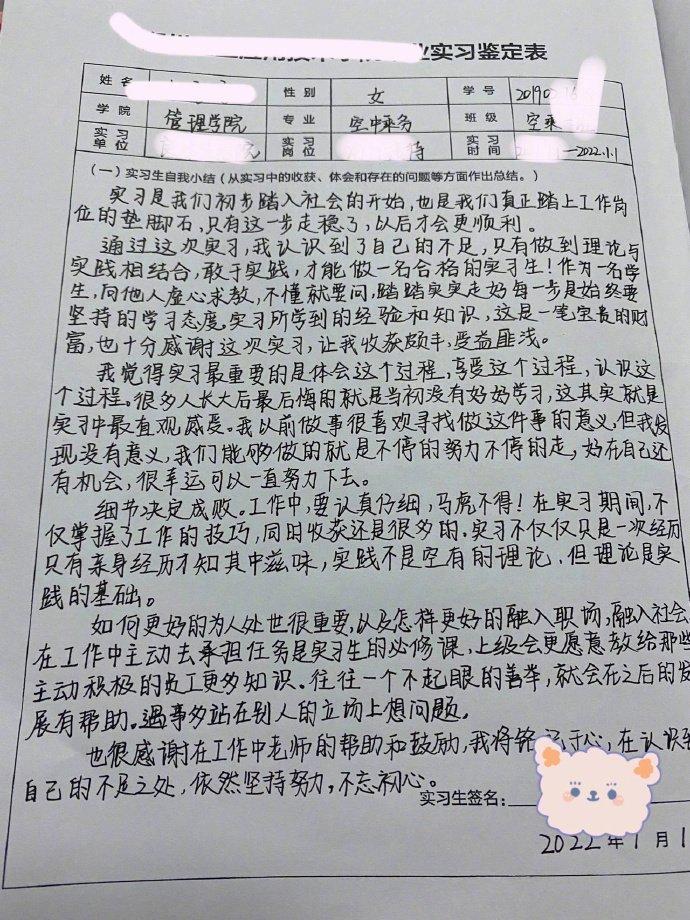 业实习鉴定表
姓名 性别 女 学号 20190
学院 管理学院 专业 空中乘务 班级 空乘
实习单位 实习岗位 待 实习时间 —2022.1.1
（一）实习生自我小结（从实习中的收获、体会和存在的问题等方面作出总结。）
实习是我们初步踏入社会的开始，也是我们真正踏上工作岗
位的垫脚石，只有这一步走稳了，以后才会更顺利。
通过这次实习，我认识到了自己的不足，只有做到理论与
实践相结合，敢于实践，才能做一名合格的实习生！作为一名学
生，向他人虚心求教，不懂就要问，踏踏实实走好每一步是始终要
坚持的学习态度。实习所学到的经验和知识，这是一笔宝贵的财
富，也十分感谢这次实习，让我收获颇丰，受益匪浅。
我觉得实习最重要的是体会这个过程，享受这个过程，认识这
个过程。很多人长大后最后悔的就是当初没有好好学习，这其实就是
实习中最直观感受。我以前做事很喜欢寻找做这件事的意义，但我发
现没有意义，我们能够做的就是不停的努力不停的走，好在自己还
有机会，很幸运可以一直努力下去。
细节决定成败。工作中，要认真仔细，马虎不得！在实习期间，不
仅掌握了工作的技巧，同时收获还是很多的。实习不仅仅只是一次经历
只有亲身经历才知其中滋味，实践不是空有的理论，但理论是实
践的基础。
如何更好的为人处世很重要，以及怎样更好的融入职场，融入社会
在工作中主动去承担任务是实习生的必修课，上级会更愿意教给那些
主动积极的员工更多知识。往往一个不起眼的善举，就会在之后的发
展有帮助。遇事多站在别人的立场上想问题。
也很感谢在工作中老师的帮助和鼓励，我将铭记于心，在认识到
自己的不足之处，依然坚持努力，不忘初心。
实习生签名：
2022年1月1